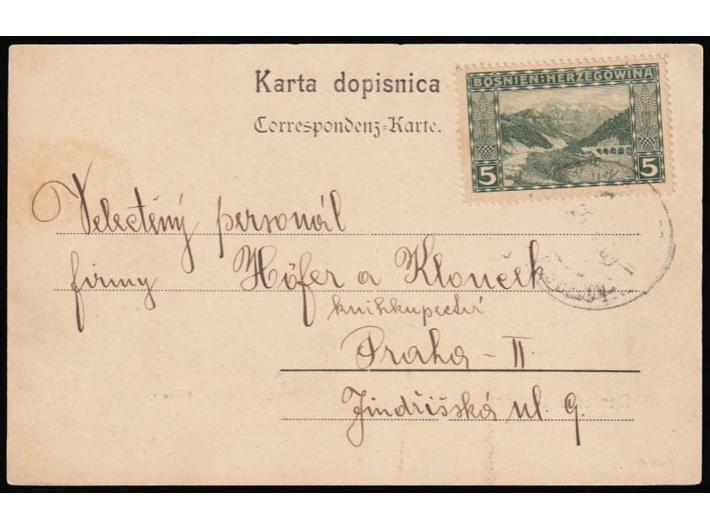 BOSNIEN-HERZEGOWINA
5 5
Karta dopisnica
Correspondenz-Karte.
Velectěný personál
firmy Höfer a Klouček
knihkupectví
Praha - II.
Jindřišská ul. 9.